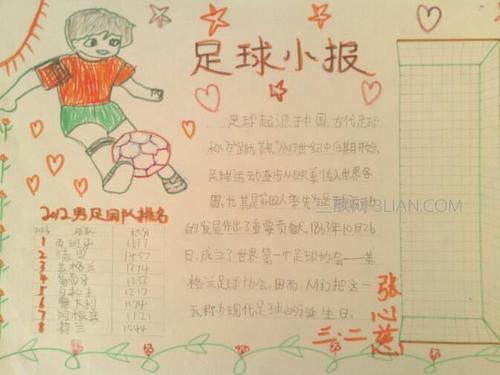 足球小报
足球起源于中国,古代足球
称为"蹴鞠"从17世纪中后期开始,
足球运动逐步从欧美传入世界各
国,尤其是
的发展作出了重要贡献.1863年10月26
日,成立了世界第一个足球协会——英
格兰足球协会.因而,人们把这一
天称为现代足球的诞生日.
三.二
张心慈
2012男足国队排名
球队
积分
1 西班牙 1617
2 德国 1437
3 英格兰 1274
4 葡萄牙
5
6 意大利 1174
7 阿根廷 1121
8 荷兰 1044
三联网 3LIAN.COM